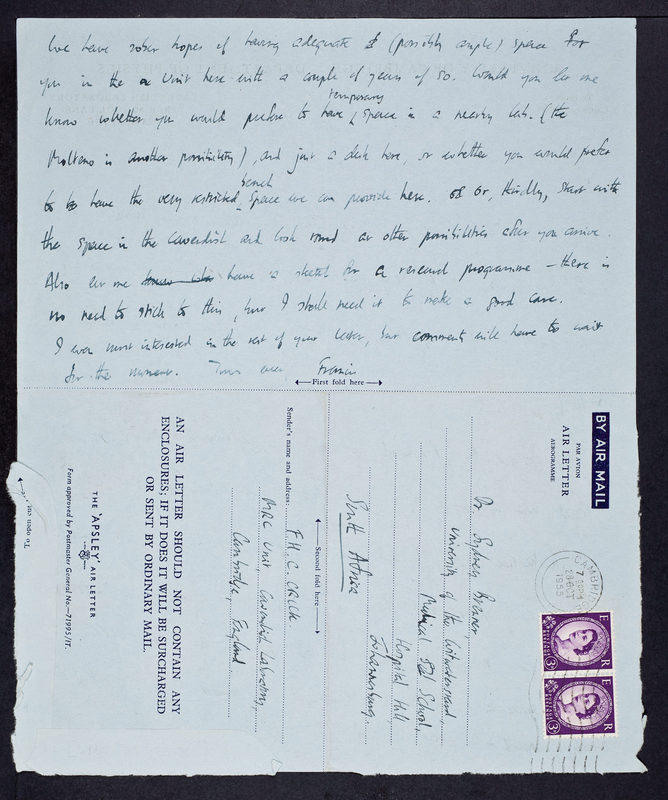 We have sober hopes of having adequate & (possibly ample) space for
you in the Unit here with a couple of years of so. Would you let me
know whether you would prefer to have temporary space in a nearby lab. (the
Molteno is another possibility), and just a desk here, or whether you would prefer
to have the very restricted bench space we can provide here. Or, thirdly, start with
the space in the Cavendish and look round at other possibilities after you arrive.
Also let me have a sketch for a research programme – there is
no need to stick to this, but I shall need it to make a good case.
I was most interested in the rest of your letter, but comments will have to wait
for the moment. Yours ever Francis
First fold here
BY AIR MAIL
PAR AVION
AIR LETTER
AEROGRAMME
CAMBRI
7 15PM
28 OCT
1955
E R
3D
POSTAGE REVENUE
E R
3D
POSTAGE REVENUE
Dr Sydney Brenner,
University of the Witwatersrand,
Medical School,
Hospital Hill,
Johannesburg,
South Africa
Second fold here
Sender's name and address:
F.H.C. CRICK
MRC Unit, Cavendish Laboratory,
Cambridge, England.
AN AIR LETTER SHOULD NOT CONTAIN ANY
ENCLOSURES; IF IT DOES IT WILL BE SURCHARGED
OR SENT BY ORDINARY MAIL.
THE 'APSLEY' AIR LETTER
Form approved by Postmaster General No.—71995/1T.
To open cut